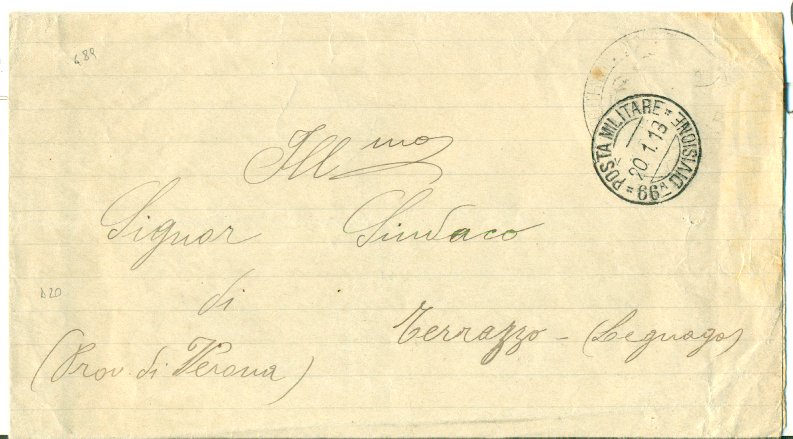 POSTA MILITARE
20.1.18
66ª DIVISIONE
Ill mo
Signor Sindaco
di
Terrazzo - (Legnago)
(Prov. di Verona)